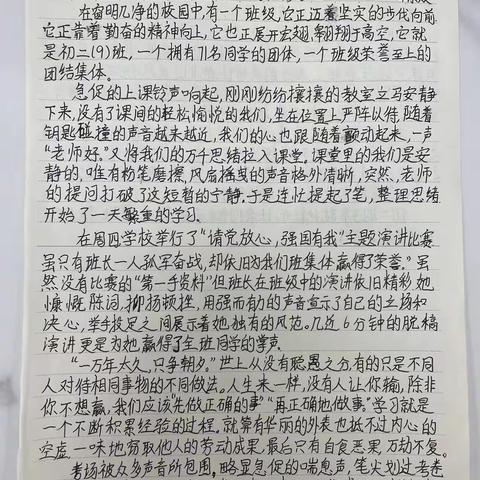 在窗明几净的校园中,有一个班级,它正迈着坚实的步伐向前
它正靠着勤奋的精神向上,它也正展开宏翅,翱翔于高空,它就
是初二(9)班,一个拥有71名同学的团体,一个班级荣誉至上的
团结集体。
急促的上课铃声响起,刚刚纷纷攘攘的教室立马安静
下来,没有了课间的轻松愉悦的我们,坐在位置上严阵以待,随着
钥匙碰撞的声音越来越近,我们的心也跟随着颤动起来,一声
“老师好”又将我们的万千思绪拉入课堂。课堂里的我们是安
静的,唯有粉笔磨擦,风扇摇曳的声音格外清晰,突然,老师
的提问打破了这短暂的宁静,于是连忙提了笔,整理思绪
开始了一天繁重的学习。
在周四学校举行了“请党放心,强国有我”主题演讲比赛
虽只有班长一人孤军奋战,却依旧为我们班集体赢得了荣誉。虽
然没有比赛的“第一手资料”但班长在班级中的演讲依旧精彩,她
慷慨陈词,抑扬顿挫,用强而有力的声音宣示了自己的立场和
决心,举手投足之间展示着她独有的风范。几近6分钟的脱稿
演讲更是为她赢得了全班同学的掌声。
“一万年太久,只争朝夕。”世上从没有聪愚之分,有的只是不同
人对待相同事物的不同做法。人生来一样,没有人让你输,除非
你不想赢,我们应该“先做正确的事”“再正确地做事”学习就是
一个不断积累经验的过程。就算有华丽的外表也抵不过内心的
空虚,一味地窃取他人的劳动成果,最后只有自食恶果,万劫不复。
考场被众多声音所包围,略显急促的喘息声,笔尖划过考卷